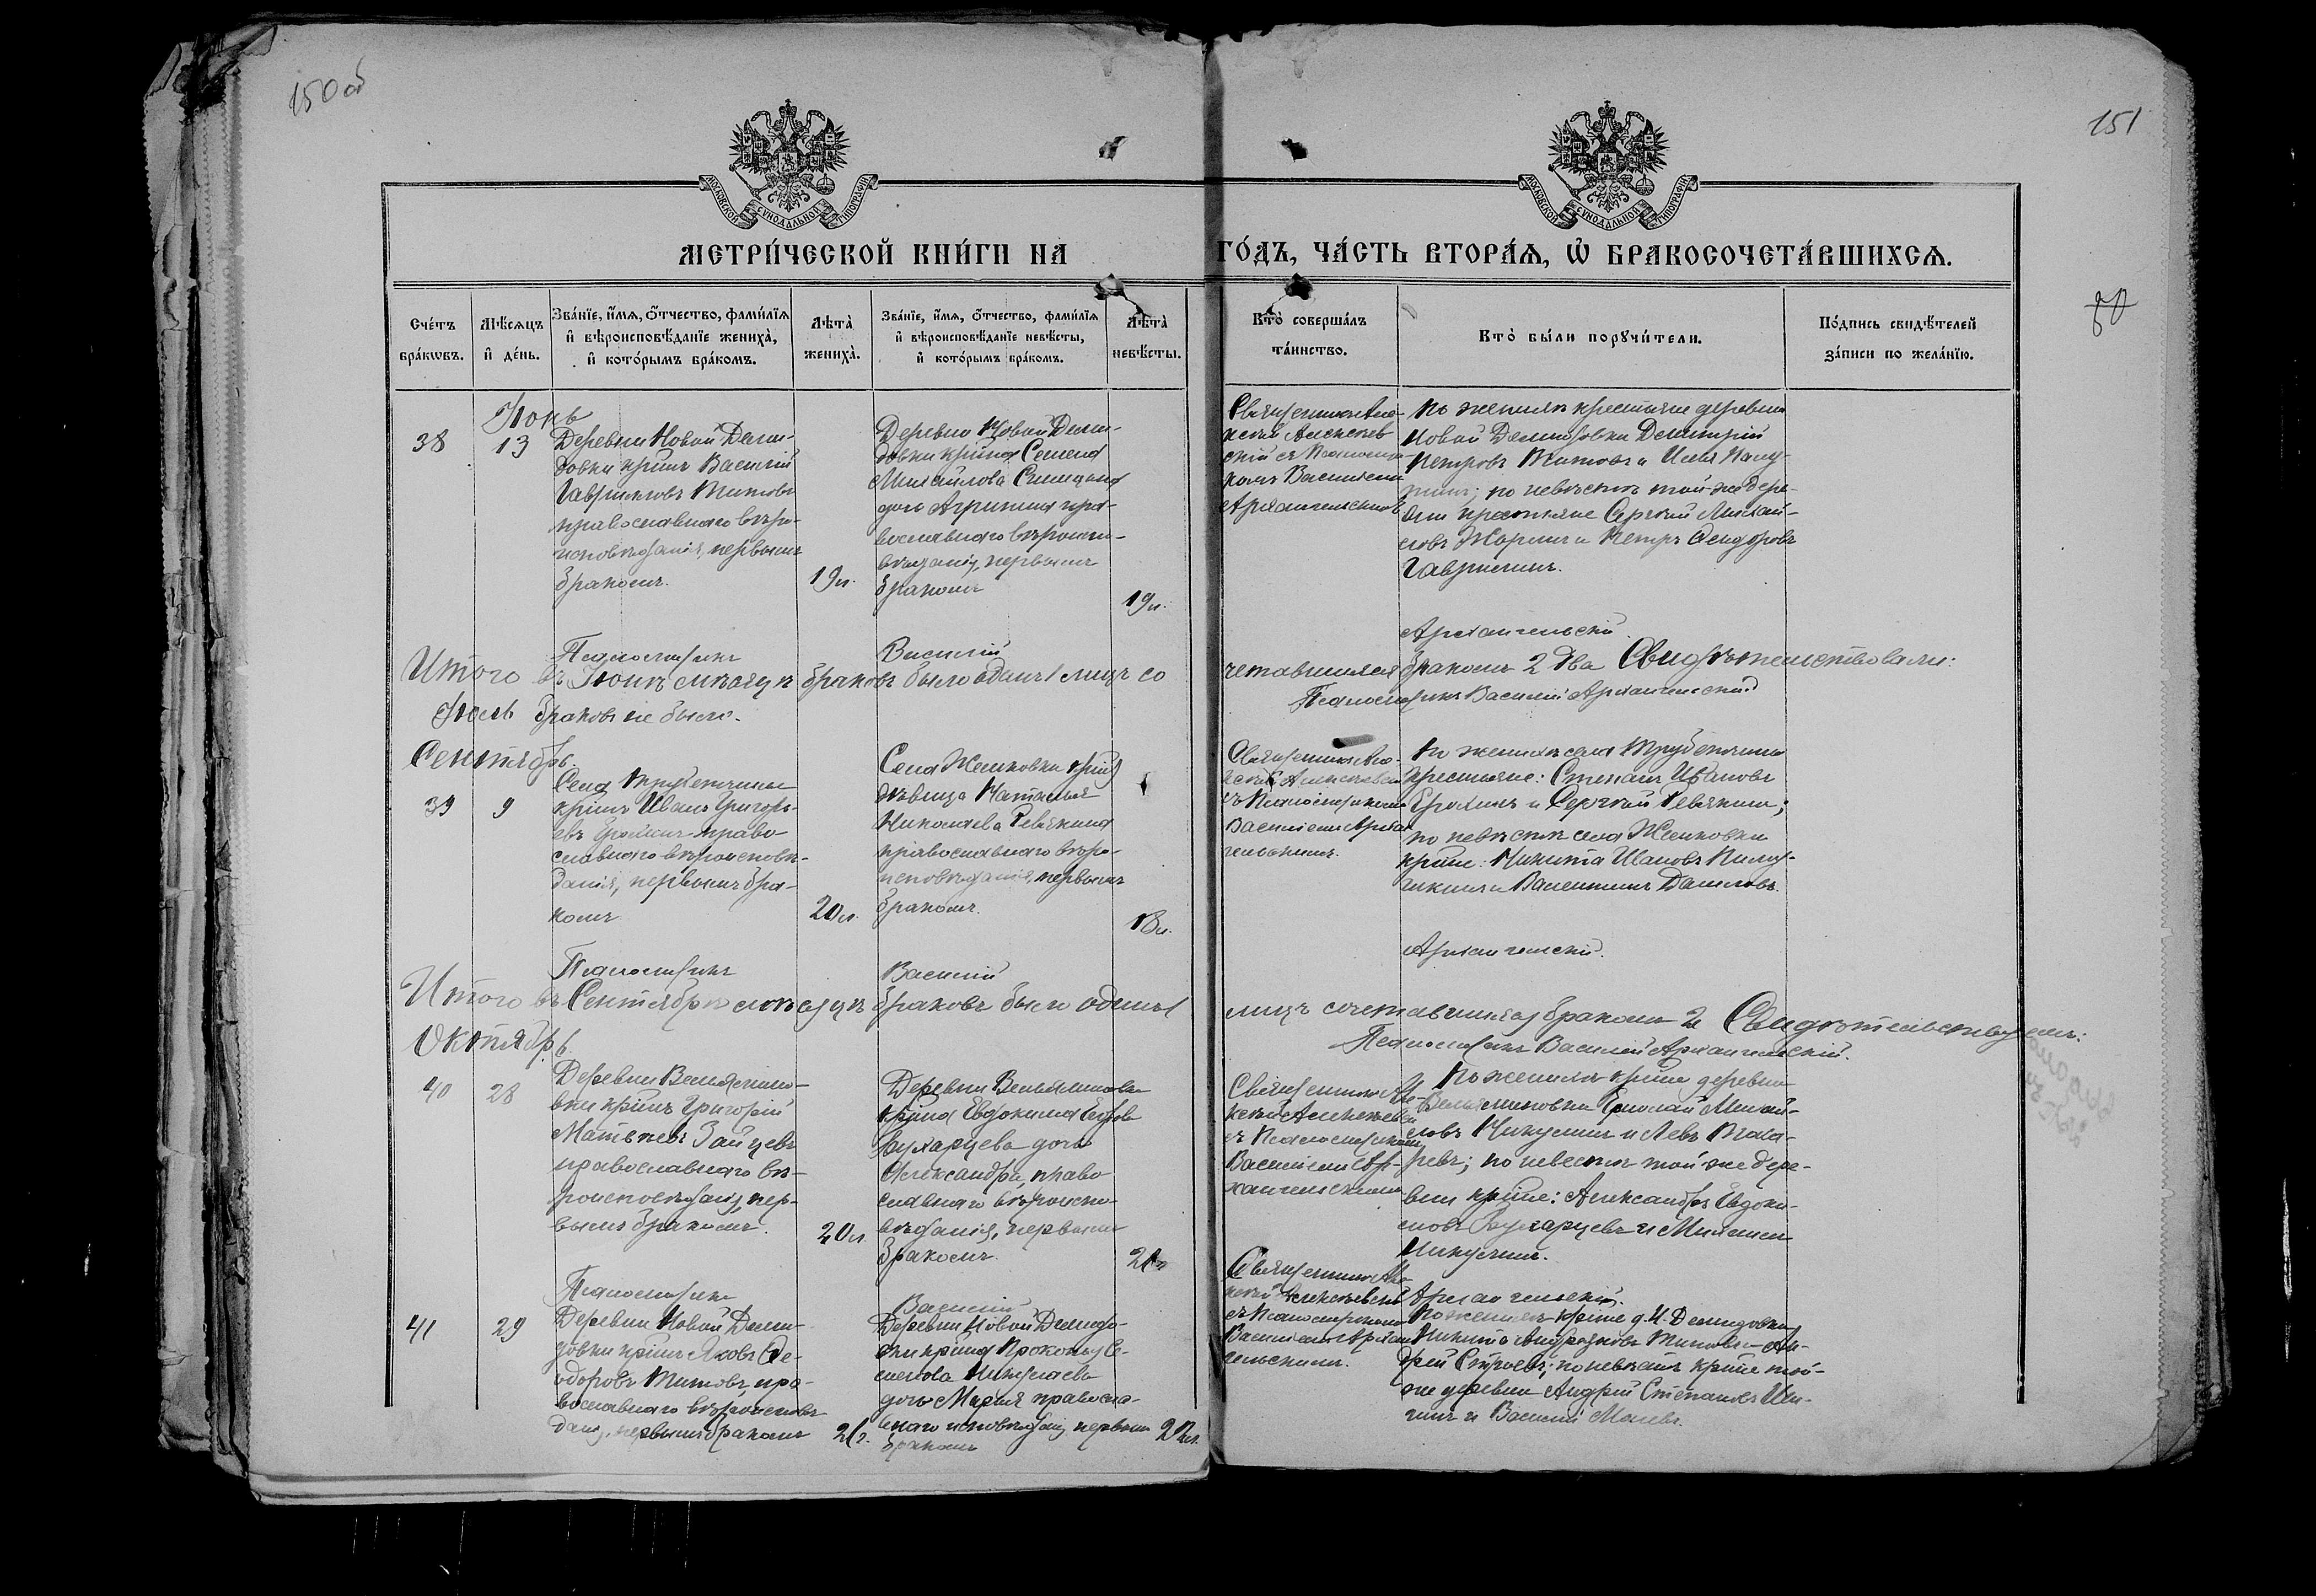 150 об
151
80
МОСКОВСКОЙ СѴНОДАЛЬНОЙ ТИПОГРАФІИ
МОСКОВСКОЙ СѴНОДАЛЬНОЙ ТИПОГРАФІИ
МЕТРИ́ЧЕСКОЙ КНИ́ГИ НА
ГО́ДЪ, ЧА́СТЬ ВТОРА́Я, Ѽ БРАКОСОЧЕТА́ВШИХСЯ.
Сче́тъ бра́кѡвъ.
Мѣ́сяцъ и҆ де́нь.
Зва́нїе, и҆́мя, ѻ҆́тчество, фами́лїя и҆ вѣроисповѣ́данїе жениха̀, и҆ кото́рымъ бра́комъ.
Лѣта̀ жениха̀.
Зва́нїе, и҆́мя, ѻ҆́тчество, фами́лїя и҆ вѣроисповѣ́данїе невѣ́сты, и҆ кото́рымъ бра́комъ.
Лѣта̀ невѣ́сты.
Кто̀ соверша́лъ та́инство.
Кто̀ бы́ли порꙋчи́тели.
По́дпись свидѣ́телей за́писи по жела́нїю.
Іюнь
38
13
Деревни Новой Деми-
довки кр-инъ Василій
Гавриловъ Титовъ
православнаго вѣро-
исповѣданія, первымъ
бракомъ.
19 л.
Деревни Новой Деми-
довки кр-ина Семена
Михайлова
дочь Агрипина пра-
вославнаго вѣроиспо-
вѣданія, первымъ
бракомъ
19 л.
Священникъ Але-
ксѣй Алексѣев
скій съ Псаломщи-
комъ Василіемъ
Архангельским
По женихѣ крестьяне деревни
Новой Демидовки Димитрій
Петровъ Титовъ и Илья
по невѣстѣ той же дере-
вни крестьяне Сергѣй Михай-
ловъ и Петръ Ѳедоровъ
Гаврилинъ.
Псаломщикъ
Василій
Архангельскій.
Итого въ Іюнѣ мѣсяцѣ браковъ было одинъ 1 лицъ со
четавшихся бракомъ 2 два Свидѣтельствовали:
Іюль браковъ не было.
Псаломщикъ Василій Архангельскій
Сентябрь.
39
9
Села Трубетчины
кр-инъ Иванъ Григорь-
евъ Ерохинъ право-
славнаго вѣроисповѣ-
данія, первымъ бра-
комъ
20 л.
Села Жемковки кр-ая
дѣвица Наталья
Николаева Ревякина
православнаго вѣро-
исповѣданія, первымъ
бракомъ.
18 л.
Священникъ Але-
ксѣй Алексѣевскій
съ Псаломщикомъ
Василіемъ Архан
гельскимъ.
По женихѣ села Трубетчины
крестьяне: Степанъ Ивановъ
Ерохинъ и Сергѣй Ревякин;
по невѣстѣ села Жемковки
кр-не: Никита Ивановъ
и Валентинъ Даниловъ.
Псаломщикъ
Василій
Архангельскій.
Итого въ Сентябрѣ мѣсяцѣ браковъ было одинъ 1
лицъ сочетавшихся бракомъ 2 Свидѣтельствуемъ:
Псаломщикъ Василій Архангельскій.
Октябрь.
40
28
Деревни Вельяминов-
вки кр-инъ Григорій
Матвѣевъ Зайцевъ
православнаго вѣ-
роисповѣданія, пер-
вымъ бракомъ.
20 л.
Деревни Вельяминовки
кр-ина Евдокима
Бухарцева дочь
Александра, право
славнаго вѣроиспо-
вѣданія, первымъ
бракомъ.
21 г.
Священникъ Але-
ксѣй Алексѣевскій
съ Псаломщикомъ
Василіемъ Ар-
хангельскимъ
По женихѣ кр-не деревни
Вельяминовки Ермолай Михай-
ловъ Никулинъ и Левъ
по невѣстѣ той же дере-
вни кр-не: Александръ Евдоки-
мовъ Бухарцевъ и Михаилъ
Никулинъ.
Псаломщикъ
Василій
Архангельскій.
41
29
Деревни Новой Деми-
довки кр-инъ Яковъ Ѳе-
доровъ Титовъ, пра-
вославнаго вѣроисповѣ-
данія, первымъ бракомъ
21 г.
Деревни Новой Демидо-
вки кр-ина Прокопія Се-
менова
дочь Марія православ-
наго исповѣданія, первымъ
бракомъ
22 л.
Священникъ Але-
ксѣй Алексѣевскій
съ Псаломщикомъ
Василіемъ Архан
гельскимъ.
По женихѣ кр-не д. Н. Демидовки
Никита Титовъ и Ан-
дрей по невѣстѣ кр-не той-
же деревни Андрей Степановъ
и Василій